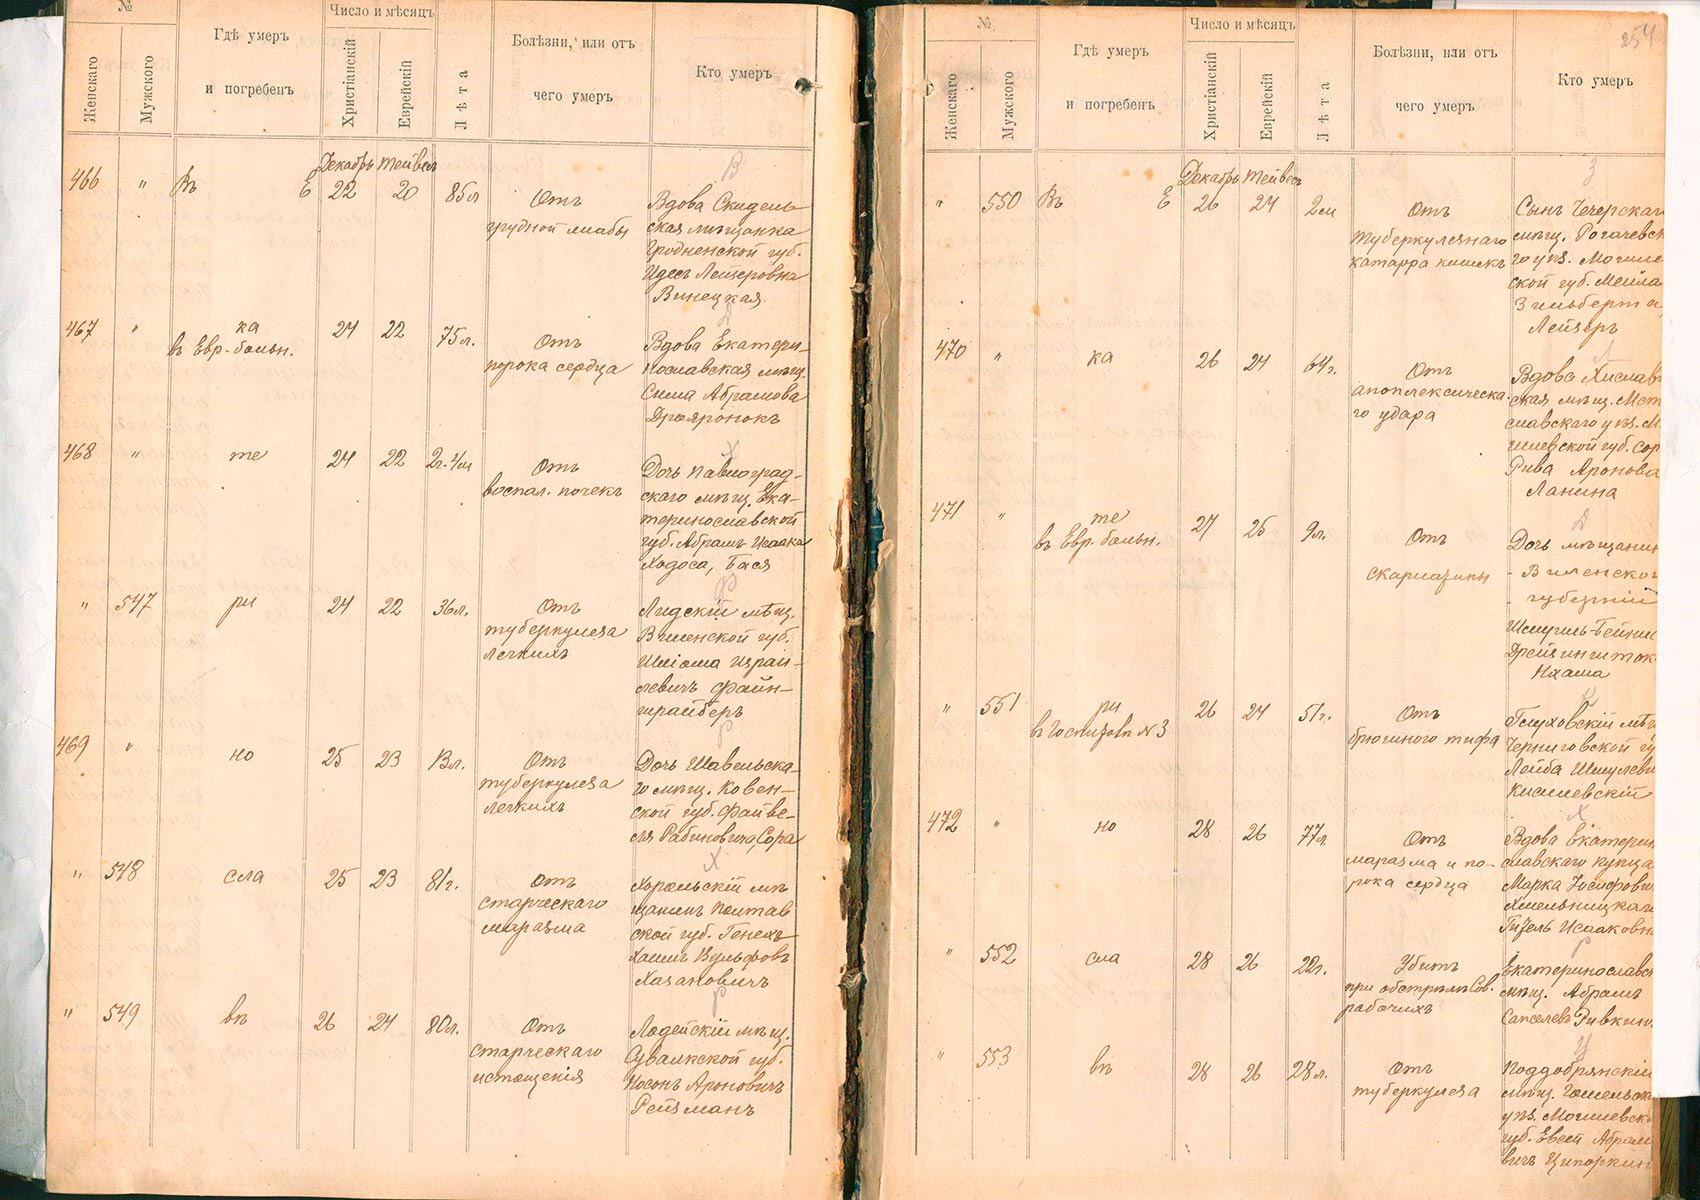 №
Число и мѣсяцъ
Женскаго
Мужского
Гдѣ умеръ
и погребенъ
Христіанскій
Еврейскій
Лѣта
Болѣзни, или отъ
чего умеръ
Кто умеръ
Декабрь Тейвесъ
В
466 " Въ Е 22 20 85л
Отъ
грудной жабы
Вдова Скидель-
ская мѣщанка
Гродненской губ.
Идесъ Лейзеровна
Винецкая.
467 " ка
въ Евр. больн.
24 22 75л.
Отъ
порока сердца
Вдова Екатери-
нославская мѣщ.
Сима Абрамова
468 " те 24 22 2г. 4м
Отъ
воспал. почекъ
Х
Дочь Павлоград-
скаго мѣщ. Ека-
теринославской
губ. Абрамъ Исаака
Ходоса, Бася
" 547 ри 24 22 36л.
Отъ
туберкулеза
легкихъ
Ф
Лидскій мѣщ.
Виленской губ.
Шліома Израи-
левичъ Файн-
шрайберъ
469 " но 25 23 13л.
Отъ
туберкулеза
легкихъ
Р
Дочь Шавельска-
го мѣщ. Ковен-
ской губ. Файве-
ля Рабиновича, Сора
" 548 сла 25 23 81г.
Отъ
старческаго
маразма
Х
Хорольскій мѣ
щанинъ Полтав
ской губ. Генехъ
Хаимъ Вульфовъ
Хазановичъ
" 549 въ 26 24 80л.
Отъ
старческаго
истощенія
Р
Лодейскій мѣщ.
Сувалкской губ.
Носонъ Ароновичъ
Рейзманъ
254
№
Число и мѣсяцъ
Женскаго
Мужского
Гдѣ умеръ
и погребенъ
Христіанскій
Еврейскій
Лѣта
Болѣзни, или отъ
чего умеръ
Кто умеръ
Декабрь Тейвесъ
З
" 550 Въ Е 26 24 2м
Отъ
туберкулезнаго
катарра кишекъ
Сынъ Чечерскаг
мѣщ. Рогачевск
го уѣз. Могиле
ской губ. Мейла
Зильберта,
Лейзеръ
470 " ка 26 24 64г.
Отъ
апоплексическа-
го удара
Л
Вдова Хиславъ
ская мѣщ. Мст
славскаго уѣз. М
гилевской губ. Сор
Рива Аронова
Ланина
471 " те
въ Евр. больн.
27 25 9л.
Отъ
скарлатины
Д
Дочь мѣщанин
- Виленской
- губерніи
Шмуиль-Бейни
Нхама
" 551 ри
въ Госпиталѣ N3
26 24 51г.
Отъ
брюшного тифа
К
Глуховскій мѣщ
Черниговской гу
Лейба Шмулеви
Кисилевскій
472 " но 28 26 77л.
Отъ
маразма и по-
рока сердца
Х
Вдова Екатерин
славскаго купца
Марка Іосифови
Хмельницкаго
Гизель Исааковн
" 552 сла 28 26 22г.
Убитъ
при обстрѣлѣ Сов.
рабочихъ
Р
Екатеринославск
мѣщ. Абрамъ
Савелевъ Ривкин
" 553 въ 28 26 28л.
Отъ
туберкулеза
Ц
Поддобрянскій
мѣщ. Гомельск
уѣз. Могилевск
губ. Евсей Абрам
вичъ Ципоркин